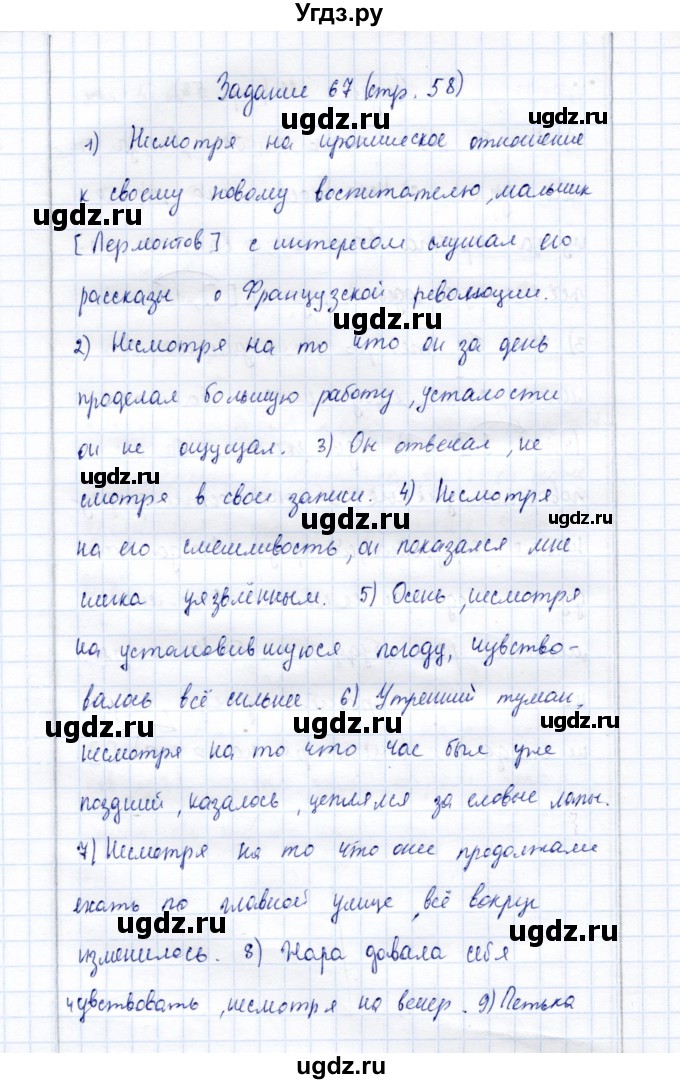 Угдз.ру
Задание 67 (стр. 58)
1) Несмотря на ироническое отношение
к своему новому воспитателю, мальчик
[Лермонтов] с интересом слушал его
рассказы о Французской революции.
2) Несмотря на то что он за день
проделал большую работу, усталости
он не ощущал. 3) Он отвечал, не
смотря в свои записи. 4) Несмотря
на его смешливость, он показался мне
слегка уязвлённым. 5) Осень, несмотря
на установившуюся погоду, чувство-
валось всё сильнее. 6) Утренний туман,
несмотря на то что час был уже
поздний, казалось, цеплялся за еловые лапы.
7) Несмотря на то что они продолжали
ехать по главной улице, всё вокруг
изменилось. 8) Жара давала себя
чувствовать, несмотря на вечер. 9) Петька
ugdz.ru
ugdz.ru
ugdz.ru
ugdz.ru
ugdz.ru
ugdz.ru
ugdz.ru
ugdz.ru
ugdz.ru
ugdz.ru
ugdz.ru
ugdz.ru
ugdz.ru
ugdz.ru